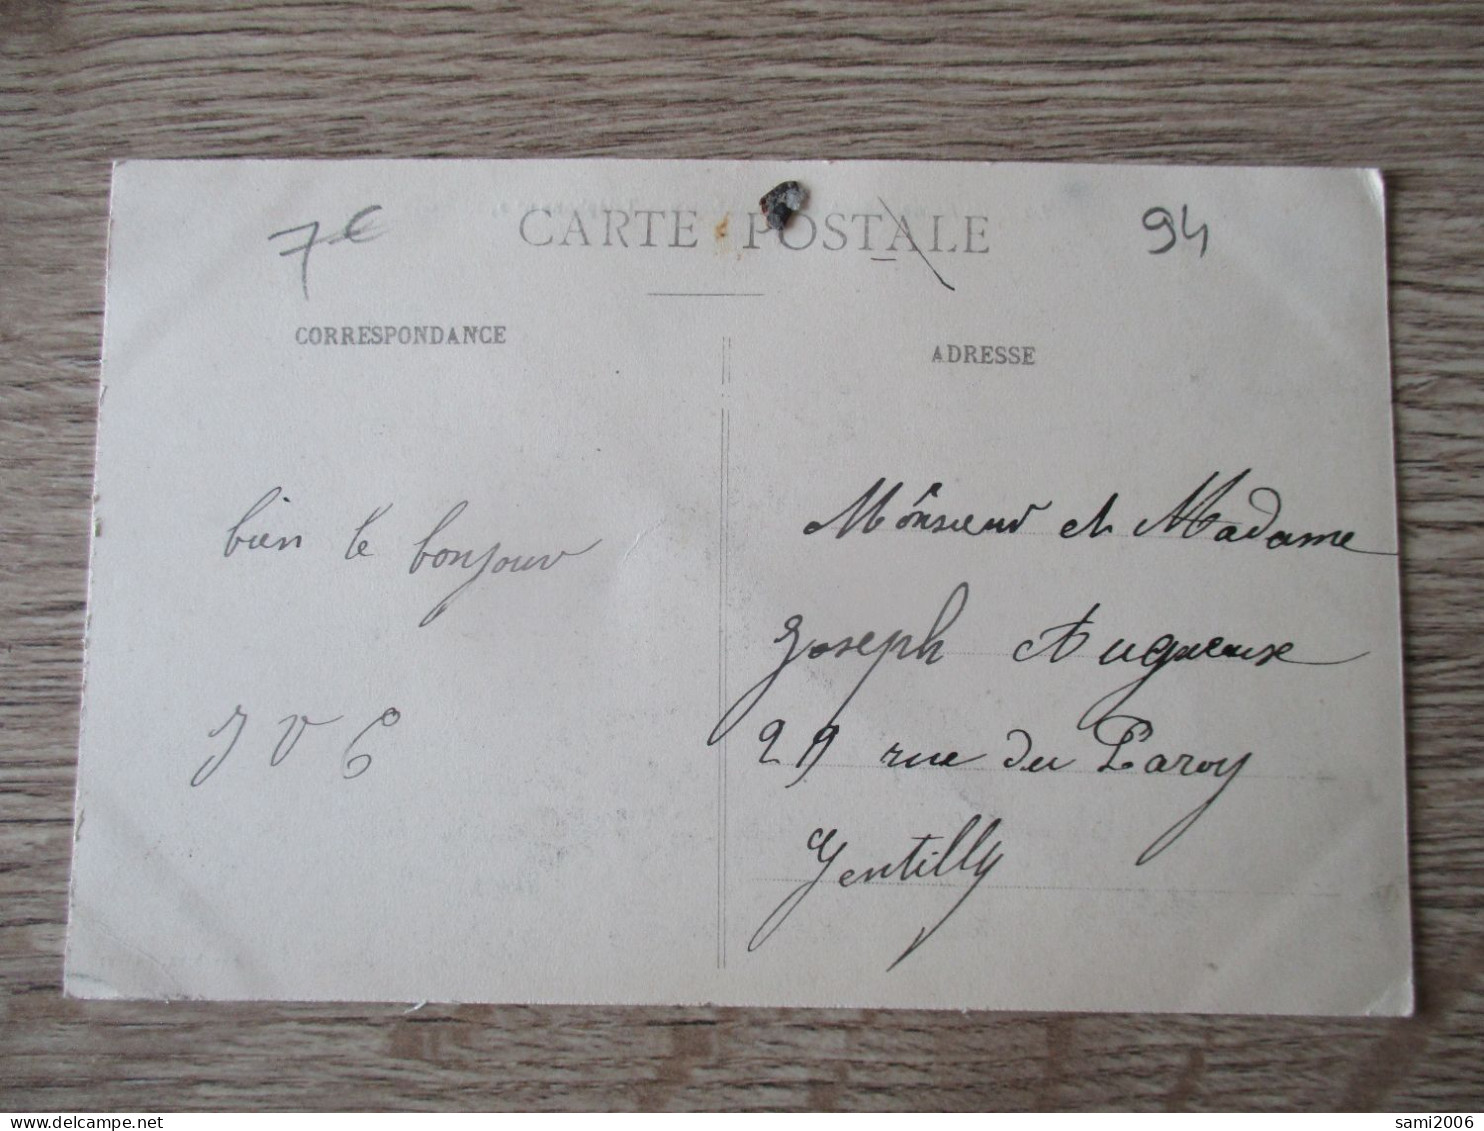 7€
CARTE POSTALE
94
CORRESPONDANCE
ADRESSE
bien le bonjour
J V C
Monsieur et Madame
Joseph Augueux
29 rue du Paroy
Gentilly
sami2006